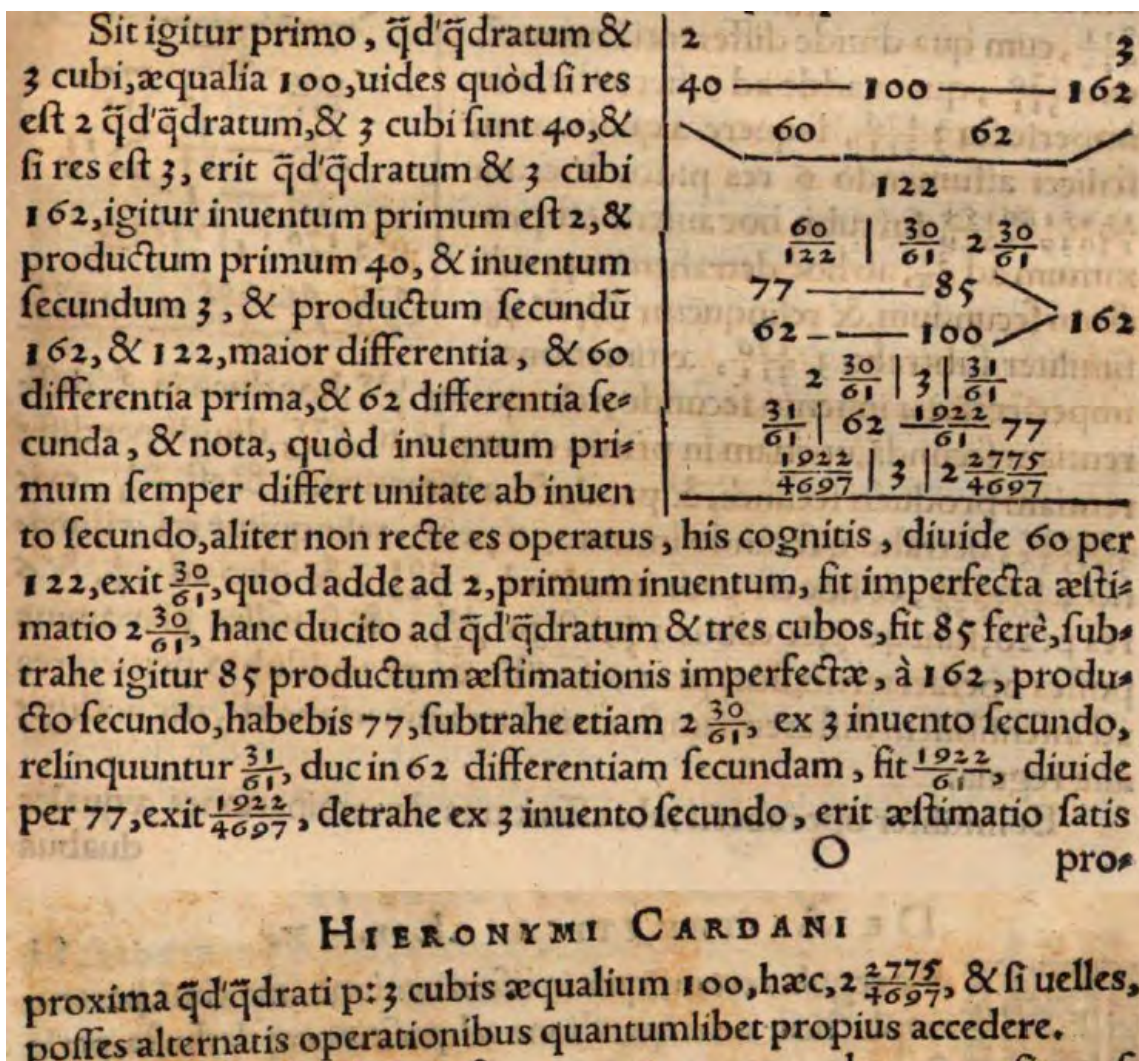 Sit igitur primo, q̃d'q̃dratum &
3 cubi, æqualia 100, uides quòd si res
est 2 q̃d'q̃dratum, & 3 cubi sunt 40, &
si res est 3, erit q̃d'q̃dratum & 3 cubi
162, igitur inuentum primum est 2, &
productum primum 40, & inuentum
secundum 3, & productum secundũ
162, & 122, maior differentia, & 60
differentia prima, & 62 differentia se-
cunda, & nota, quòd inuentum pri-
mum semper differt unitate ab inuen
2 3
40 — 100 — 162
60 62
122
60/122 | 30/61 2 30/61
77 — 85
162
62 — 100
2 30/61 | 3 | 31/61
31/61 | 62 1922/61 77
1922/4697 | 3 | 2 2775/4697
to secundo, aliter non recte es operatus, his cognitis, diuide 60 per
122, exit 30/61, quod adde ad 2, primum inuentum, fit imperfecta æsti-
matio 2 30/61, hanc ducito ad q̃d'q̃dratum & tres cubos, fit 85 ferè, sub-
trahe igitur 85 productum æstimationis imperfectæ, à 162, produ-
cto secundo, habebis 77, subtrahe etiam 2 30/61, ex 3 inuento secundo,
relinquuntur 31/61, duc in 62 differentiam secundam, fit 1922/61, diuide
per 77, exit 1922/4697, detrahe ex 3 inuento secundo, erit æstimatio satis
O pro-
HIERONYMI CARDANI
proxima q̃d'q̃drati p: 3 cubis æqualium 100, hæc, 2 2775/4697, & si uelles,
posses alternatis operationibus quantumlibet propius accedere.